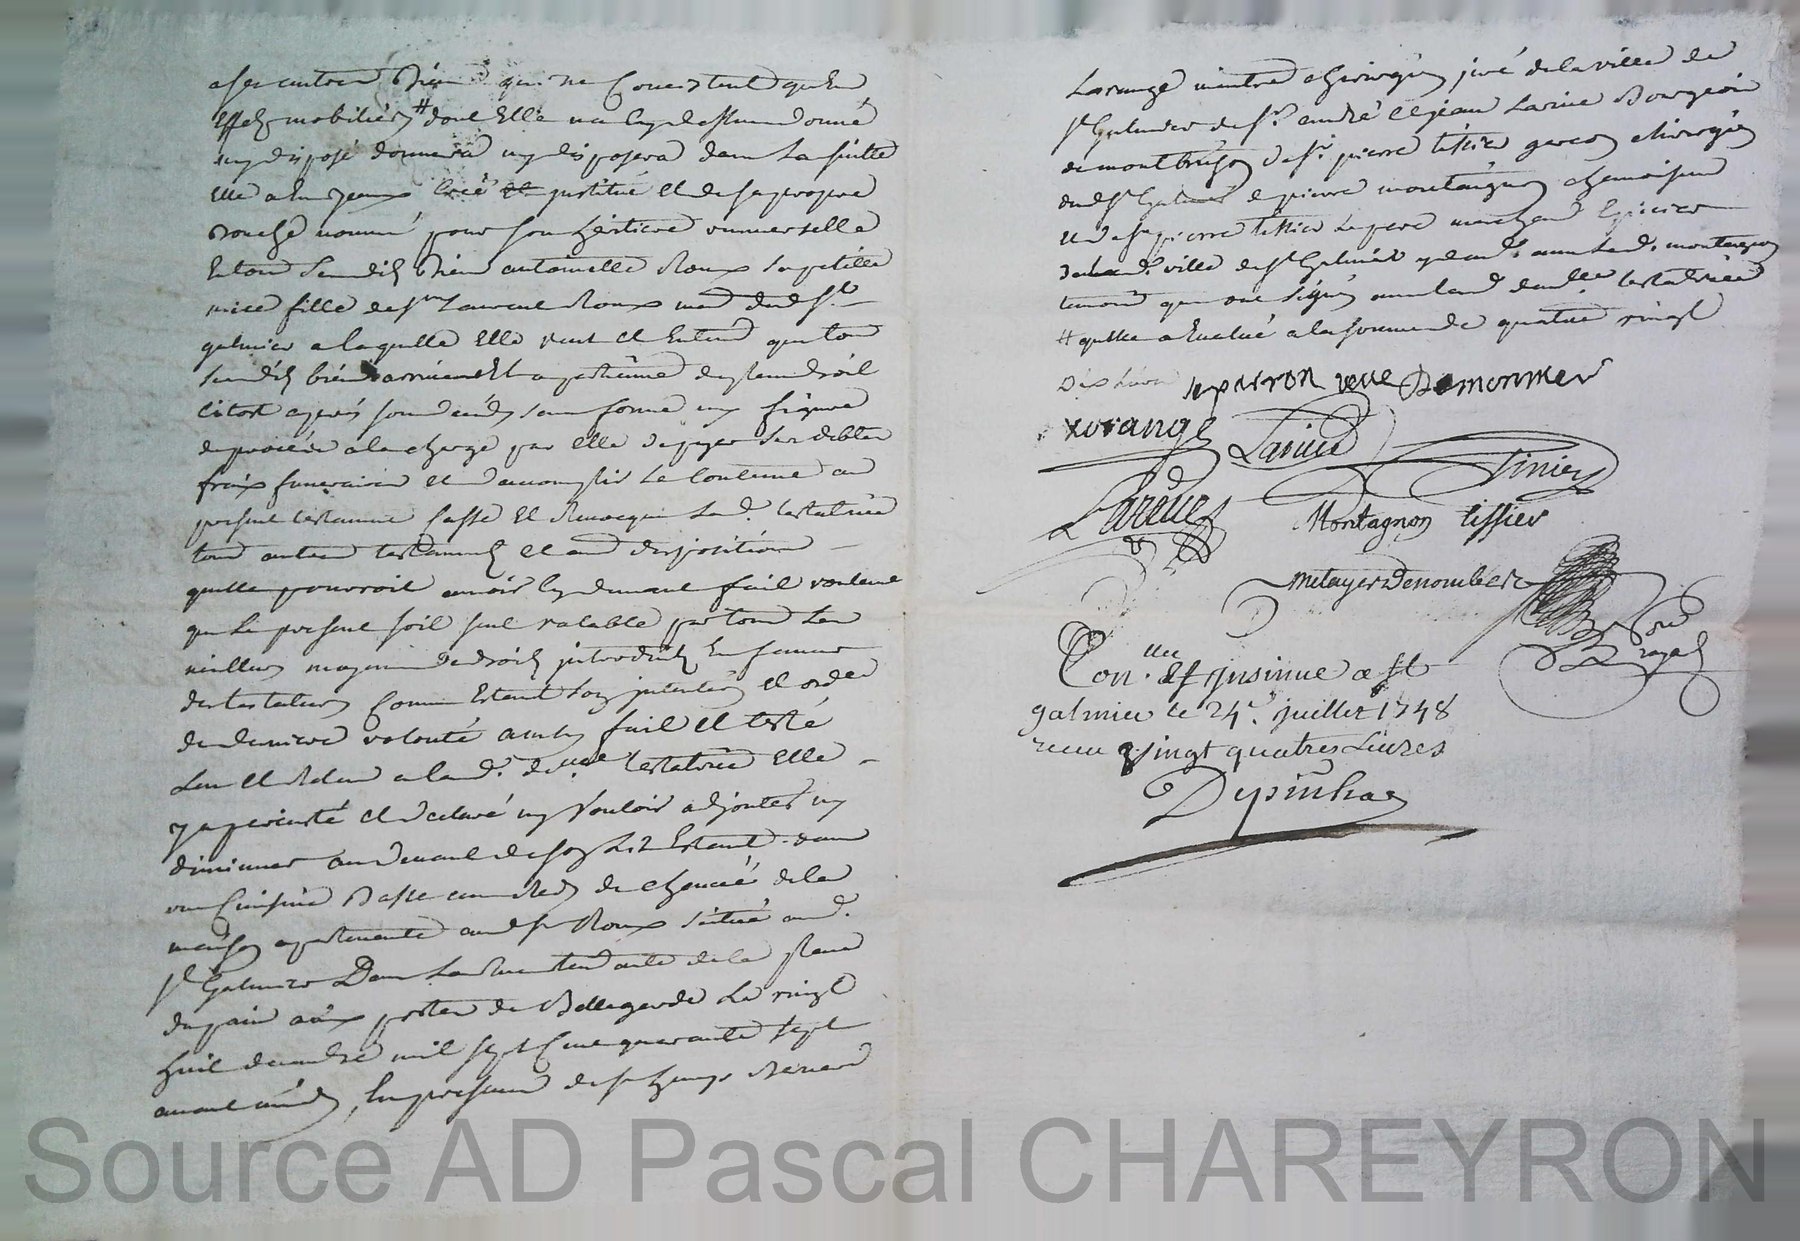 a ses autres biens qui ne consistent qu'en
effets mobiliers # dont elle n'a cy dessus donné
ny disposé donnera ny disposera dans la suitte
elle a de sa propre
bouche nommé pour son héritiere universelle
en tous sesdits biens antoinette Roux sa petitte
niece fille de sr Laurent Roux md dud st
galmier a laquelle elle veut et entend que tous
sesdits biens arrivent et appartienne de plein droit
sitost apres son deceds sans forme ny figure
de procès a la charge par elle de payer ses debtes
fraix funeraires et d'accomplir le contenu au
present testament casse et revoque lad. testatrice
tous autres testaments et aud dispositions
quelle pourroit avoir cy devant fait voulant
que le present soit seul valable par tous les
meilleurs moyens de droits introduits en faveur
des testateurs comme estant son intention et ordre
de derniere volonté ainsy fait et testé
leu et relu a lad. delle testatrice elle
y a persisté et declaré ny vouloir adjouter ny
diminuer au devant de son lit estant dans
une cuisine basse au rez de chaucé de la
maison apartenante aud sr Roux scituée aud.
st Galmier dans la rue tendante de la place
du pain aux portes de Bellegarde le vingt
huit decembre mil sept cent quarante sept
avant midy, en presence de sr
Lorange maitre chirurgien juré de la ville de
st Galmier de srs andré et jean Larue Bourgeois
de montbrison de sr pierre tissier garcon chirurgien
dud st Galmier de pierre montaignon
et de sr pierre tissier le pere marchand epicier
de lad. ville de st Galmier
temoins qui ont signés avec lad. delle testatrice
# quelle a evalué a la somme de quatre vingt
dix livres peyron veue Demonmer
Lorange Larue Tinier
Lareue Montagnon tissier
metayer Denombret
no.re royal
Con.llee et insinue a st
galmier le 24e juillet 1748
recu vingt quatres Livres
Depinhac
Source AD Pascal CHAREYRON